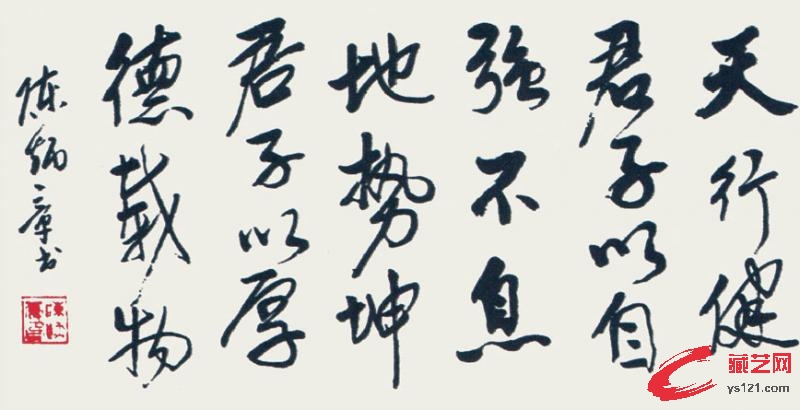 天行健
君子以自
强不息
地势坤
君子以厚
德载物
陈炳章书
藏艺网
ys121.com